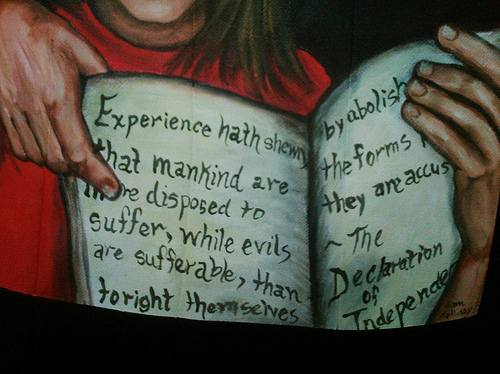 Experience hath shewn
that mankind are
more disposed to
suffer, while evils
are sufferable, than
to right themselves
by abolish
the forms
they are accus
~ The
Declaration
of
Independe